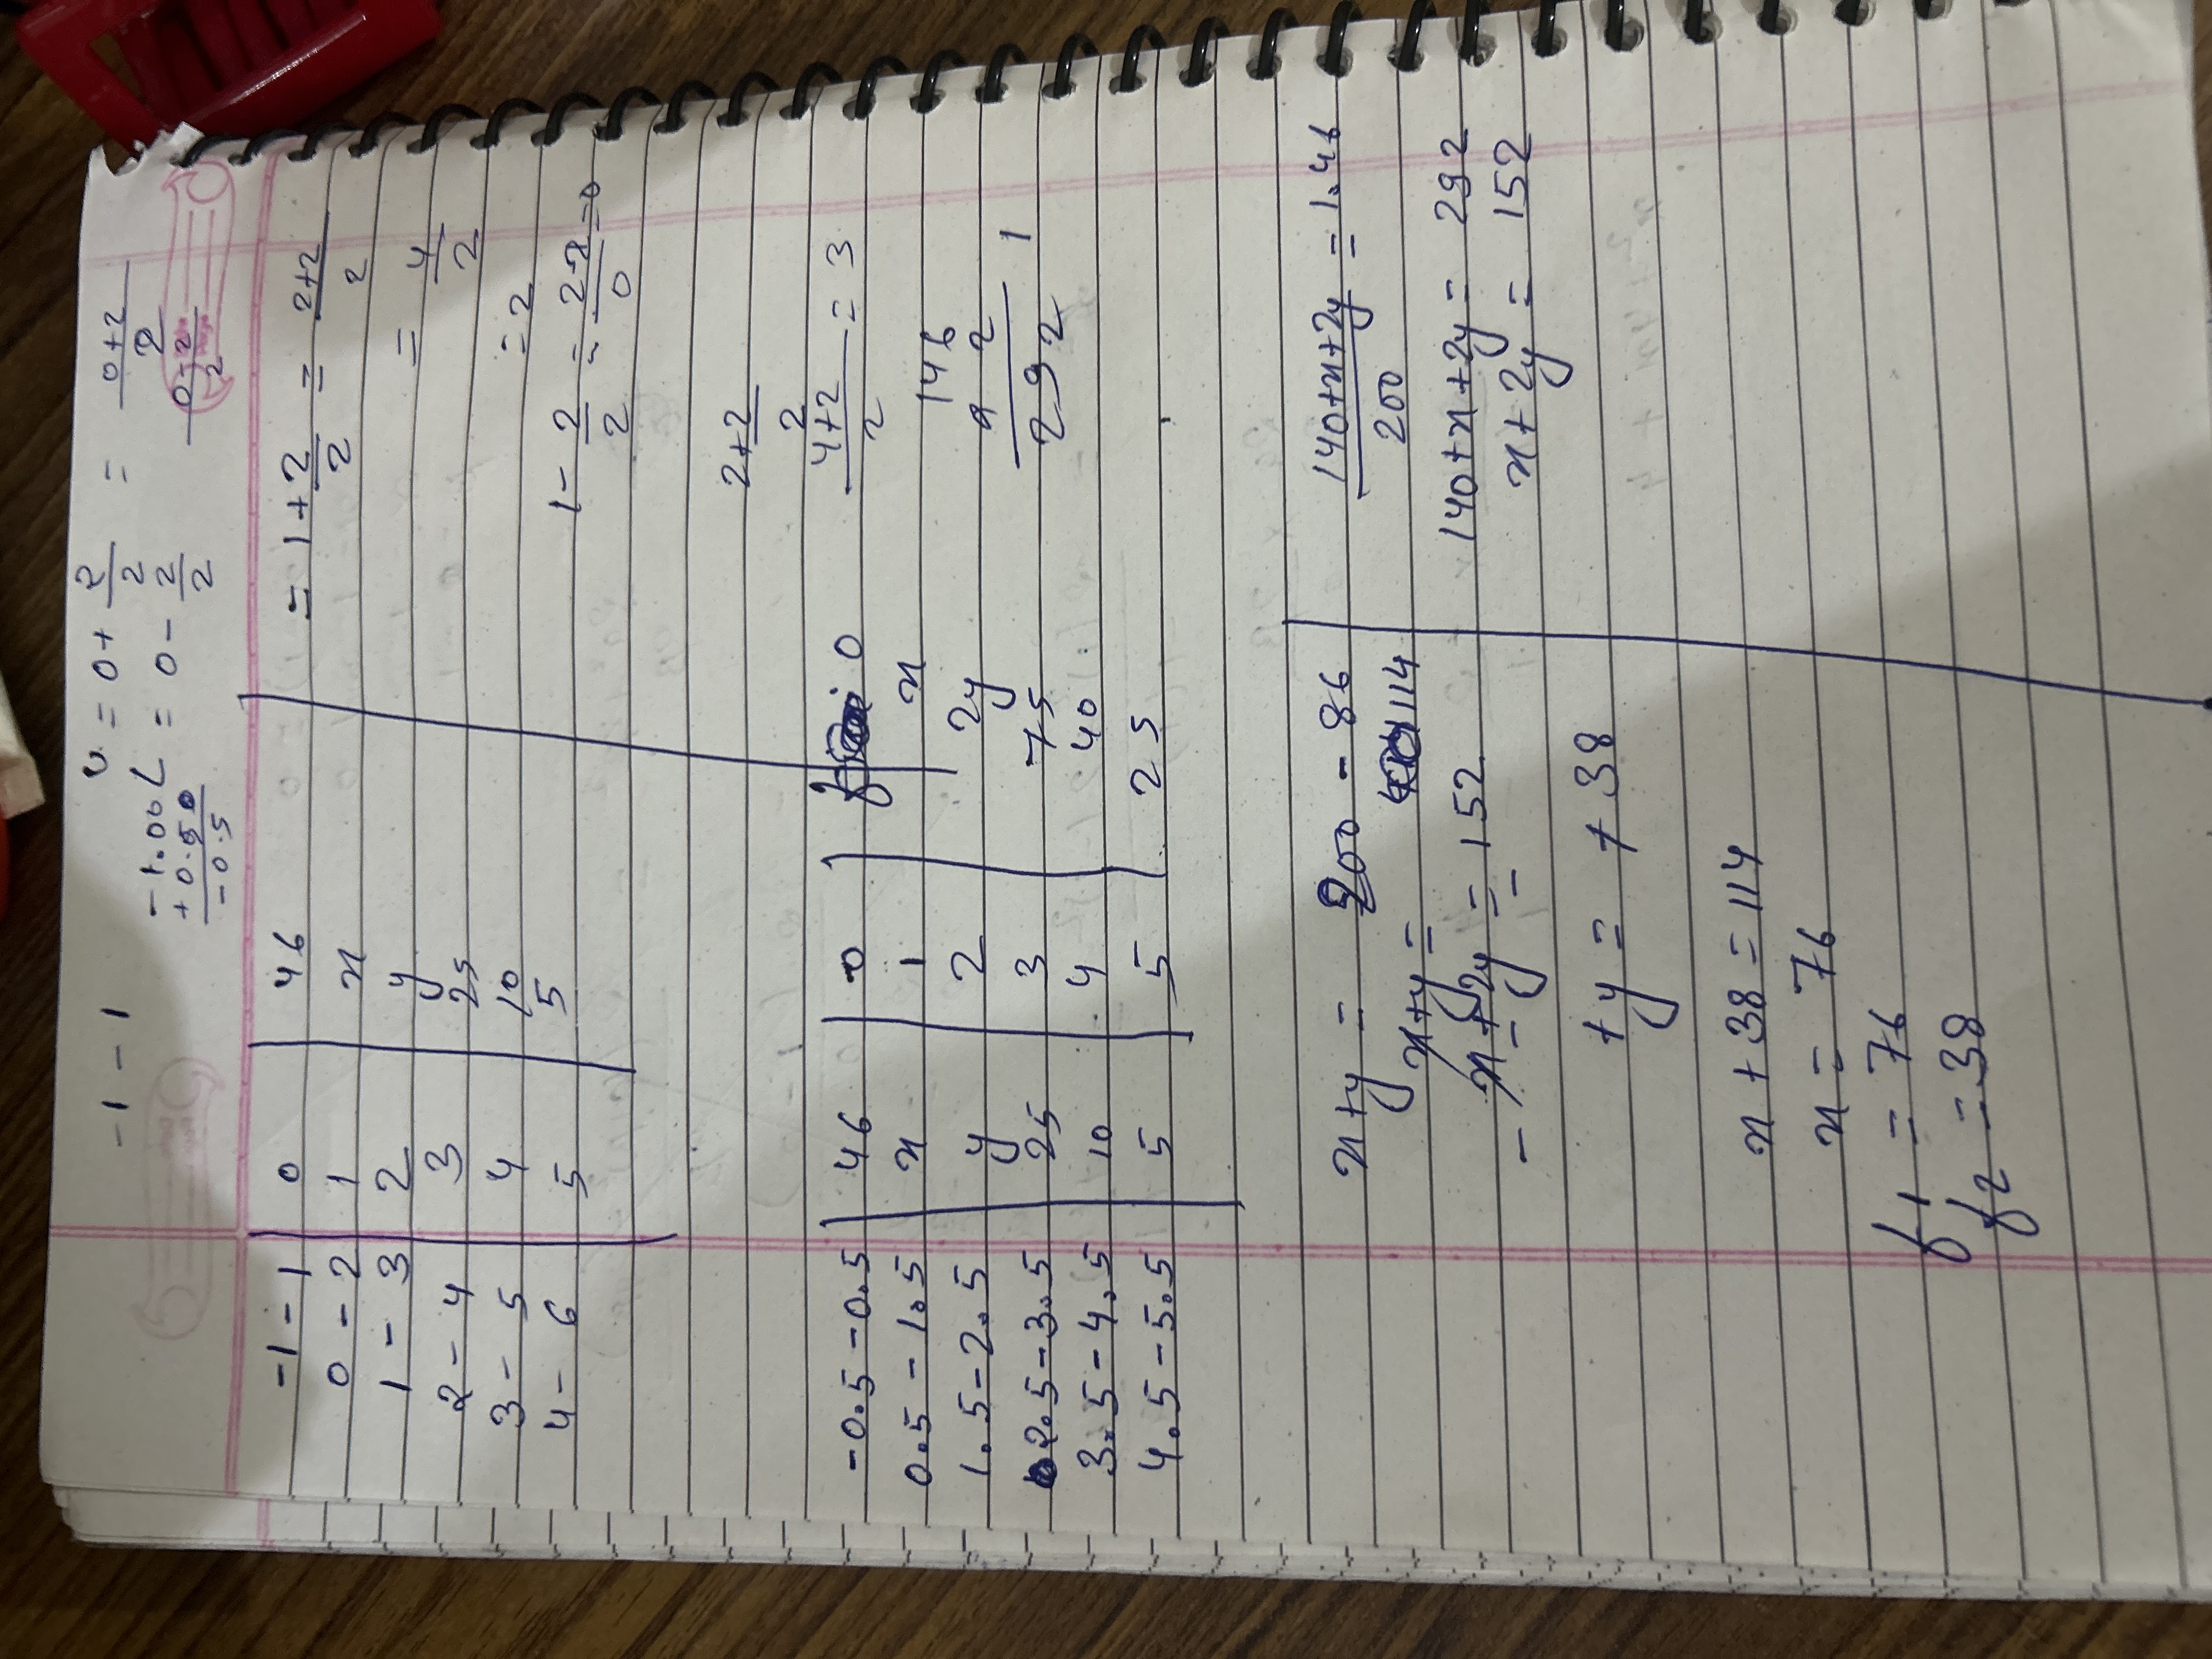 -1 - 1
U = 0 + 2/2 = 0+2/2
-1.00 L = 0 - 2/2
+0.50
-0.5
0-2/2
-1 - 1 0 46
0 - 2 1 x
1 - 3 2 y
2 - 4 3 25
3 - 5 4 10
4 - 6 5 5
= 1 + 2/2 = 2+2/2
= 4/2
= 2
1 - 2/2 = 2-2/0 = 0
2+2
2
4+2/2 = 3
-0.5 - 0.5 46 0 0
0.5 - 1.5 x 1 x
1.5 - 2.5 y 2 2y
2.5 - 3.5 25 3 75
3.5 - 4.5 10 4 40
4.5 - 5.5 5 5 25
146
2
292
1
x + y = 200 - 86
x + y = 114
x + 2y = 152
- - -
+y = +38
x + 38 = 114
x = 76
f1 = 76
f2 = 38
140+x+2y/200 = 1.46
140+x+2y = 292
x + 2y = 152